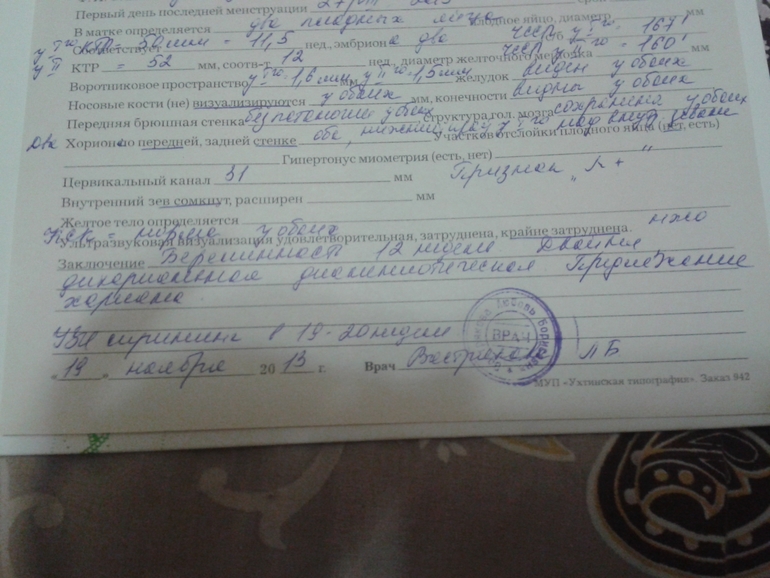 Первый день последней менструации
В матке определяется два плодных яйца плодное яйцо, диаметр мм
Соответствует нед., эмбриона два ЧСС у I го - 167'
у I го КТР = 50 мм = 11,5 ЧСС у II го - 160'
у II КТР = 52 мм, соотв-т 12 нед., диаметр желточного мешка мм
Воротниковое пространство у I го - 1,6 мм, у II го - 1,5 мм желудок виден у обоих
Носовые кости (не) визуализируются у обоих мм, конечности видны у обоих
Передняя брюшная стенка без патологии у обоих Структура гол. мозга сохранена у обоих
Два Хориона по передней, задней стенке оба, нижний край у I го над внут. зевом Участки отслойки плодного яйца (нет, есть)
Гипертонус миометрия (есть, нет)
Цервикальный канал 31 мм Признак „λ +"
Внутренний зев сомкнут, расширен мм
Желтое тело определяется
Ультразвуковая визуализация удовлетворительная, затруднена, крайне затруднена.
Заключение Беременность 12 недель Двойня
дихориальная диамниотическая Предлежание
хориона
УЗИ скрининг в 19-20 недель
„19" ноября 2013 г. Врач Л Б
ВРАЧ
МУП «Ухтинская типография». Заказ 842